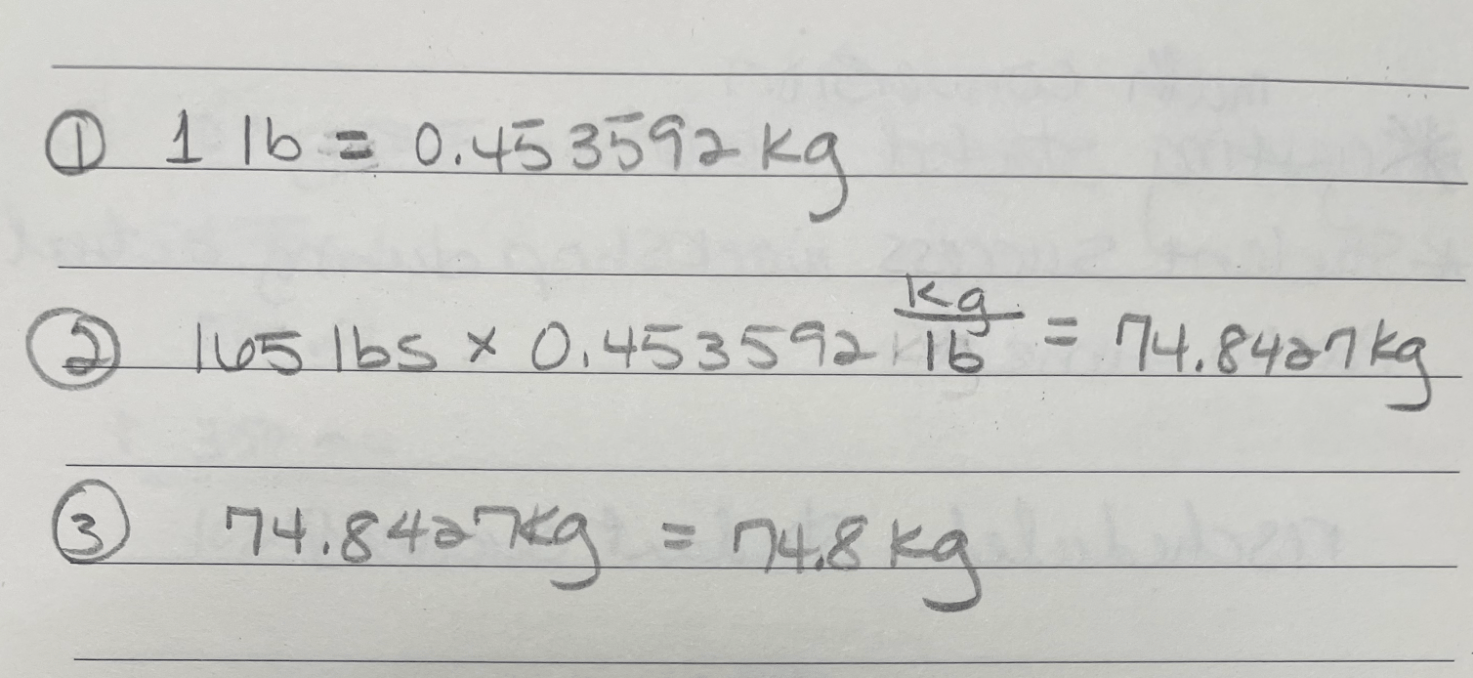 ① 1 lb = 0.453592 kg
② 165 lbs x 0.453592 kg/lb = 74.8427 kg
③ 74.8427 kg = 74.8 kg